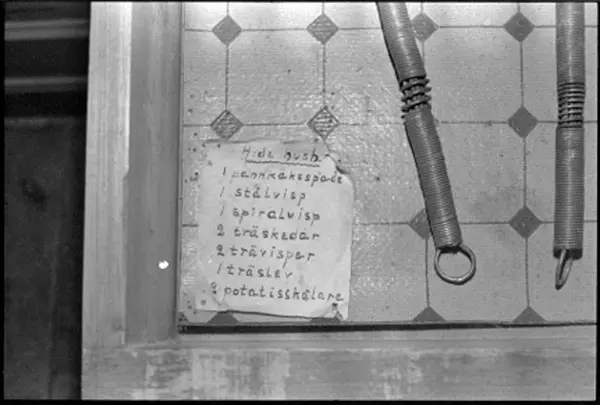 1 pannkaksspade
1 stålvisp
1 spiralvisp
2 träskedar
2 trävisper
1 träslev
2 potatisskalare